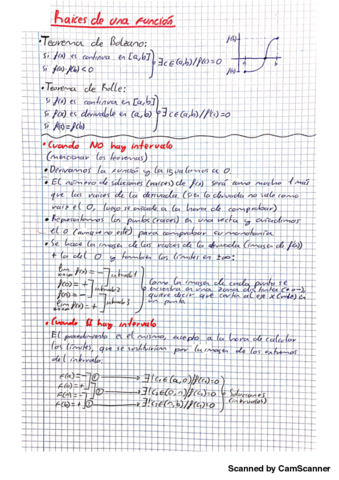 Raices de una función
• Teorema de Bolzano:
Si f(x) es continua en [a,b]
Si f(a)·f(b)<0
∃c∈(a,b)/f(c)=0
f(b)
f(a)
a
b
• Teorema de Rolle:
Si f(x) es continua en [a,b]
Si f(x) es derivable en (a,b)
Si f(a)=f(b)
∃c∈(a,b)/f'(c)=0
• Cuando NO hay intervalo
(mencionar los teoremas)
• Derivamos la función y la igualamos a 0.
• El número de soluciones (raíces) de f(x) será como mucho 1 más
que las raíces de la derivada (Si la derivada no sale como
raíz el 0, luego se añade a la hora de comprobar)
• Representamos los puntos (raíces) en una recta y añadimos
el 0 (aunque no esté) para comprobar su monotonía
• Se hace la imagen de las raíces de la derivada (imagen de f(x))
+ la del 0 y también los límites en ±∞:
lim f(x) = - intervalo 1
f(0) = + intervalo 2
f(n) = - intervalo 3
lim f(x) = +
Como la imagen de cada punto se
encuentra en una zona distinta (+ o -),
quiere decir que corta al eje x en
un punto
• Cuando SI hay intervalo
El procedimiento es el mismo, excepto a la hora de calcular
los límites, que se sustituirían por la imagen de los extremos
del intervalo.
f(a) = - ①
f(0) = + ②
f(n) = - ③
f(b) = +
∃! c₁∈(a,0)/f(c₁)=0
∃! c₂∈(0,n)/f(c₂)=0
∃! c₃∈(n,b)/f(c₃)=0
Soluciones
(intervalos)
Scanned by CamScanner